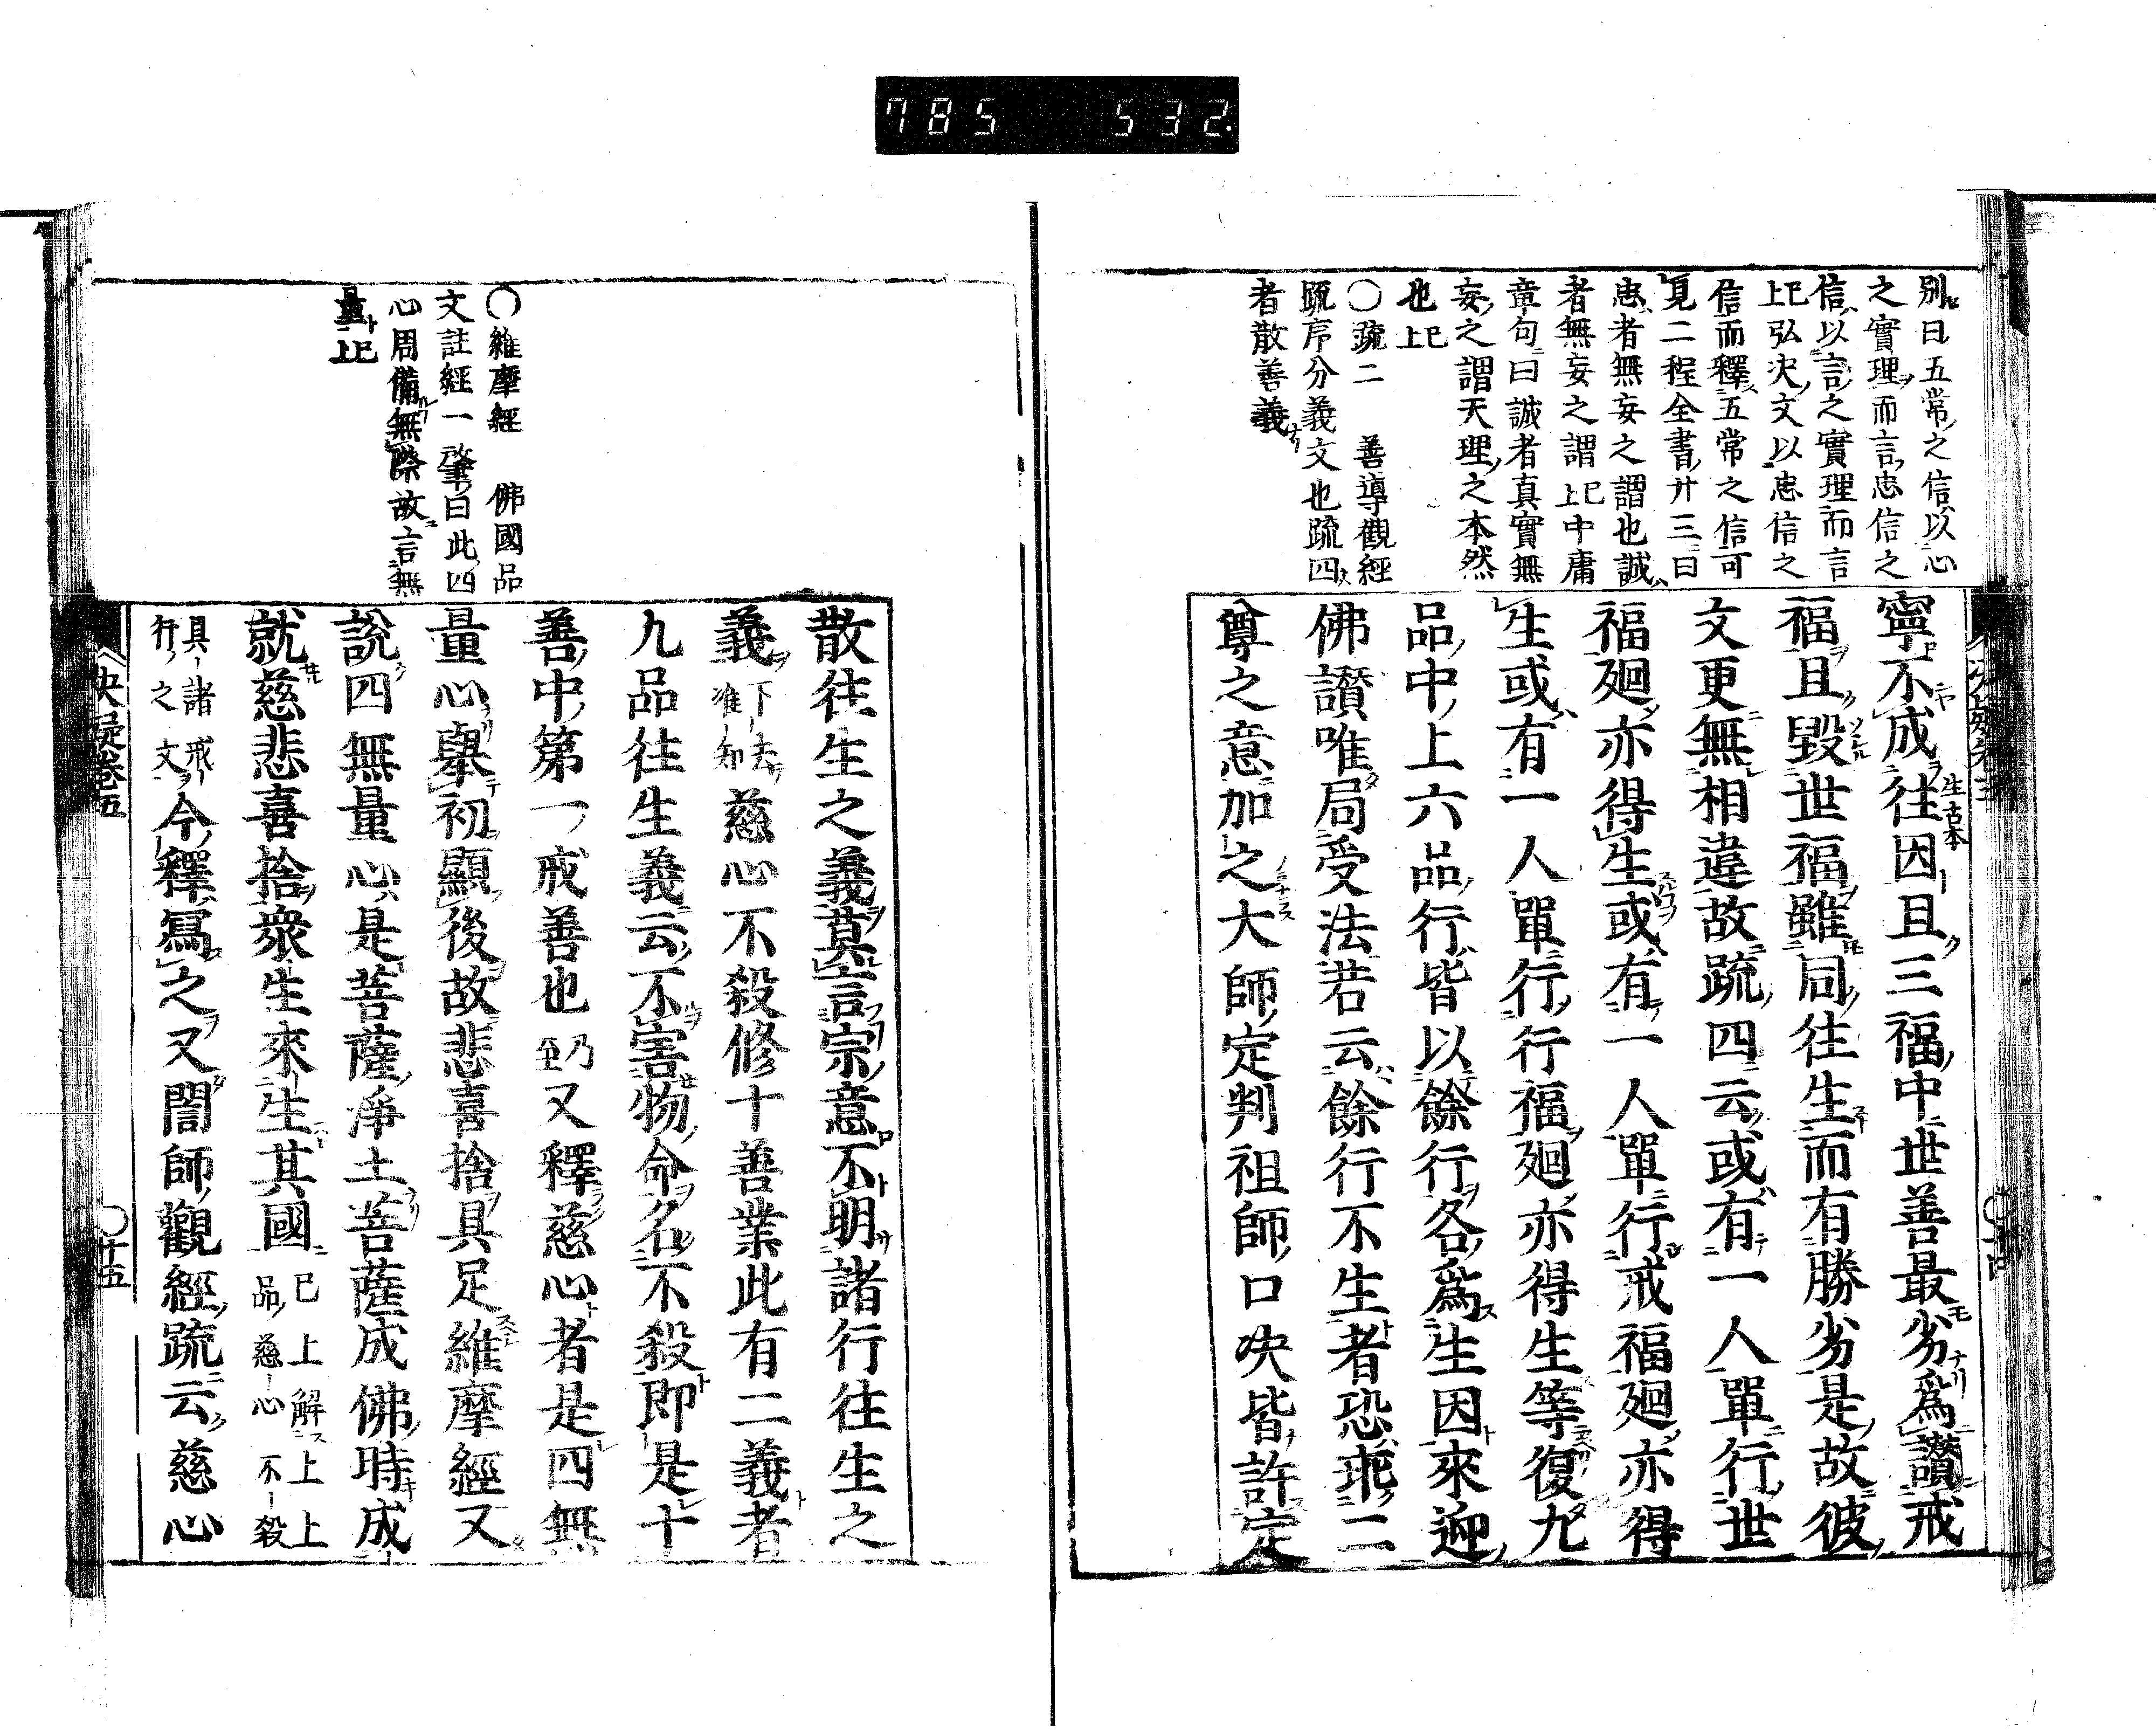 785 532
別曰五常之信以心
之實理而言忠信之
信以言之實理而言
已上弘決文以忠信之
信而釋五常之信可
見二程全書廿三曰
忠者無妄之謂也誠
者無妄之謂已上中庸
章句曰誠者真實無
妄之謂天理之本然
也已上
○疏二 善導觀經
疏序分義文也疏四
者散善義
寧不成往因且三福中世善最劣爲讃戒
生古本
福且毀世福雖同往生而有勝劣是故彼
文更無相違故疏四云或有一人單行世
福廻亦得生或有一人單行戒福廻亦得
生或有一人單行行福廻亦得生等復九
品中上六品行皆以餘行各爲生因來迎
佛讃唯局受法若云餘行不生者恐乖二
尊之意加之大師定判祖師口决皆許定
○維摩經 佛國品
文註經一肇曰此四
心周備無際故言無
量已上
散往生之義莫言宗意不明諸行往生之
義下去准知慈心不殺修十善業此有二義者
九品往生義云不害物命名不殺即是十
善中第一戒善也乃至又釋慈心者是四無
量心擧初顯後故悲喜捨具足維摩經又
說四無量心是菩薩淨土菩薩成佛時成
就慈悲喜捨衆生來生其國已上解上上品慈心不殺
具諸戒行之文今釋寫之又誾師觀經疏云慈心
決疑卷五
十五